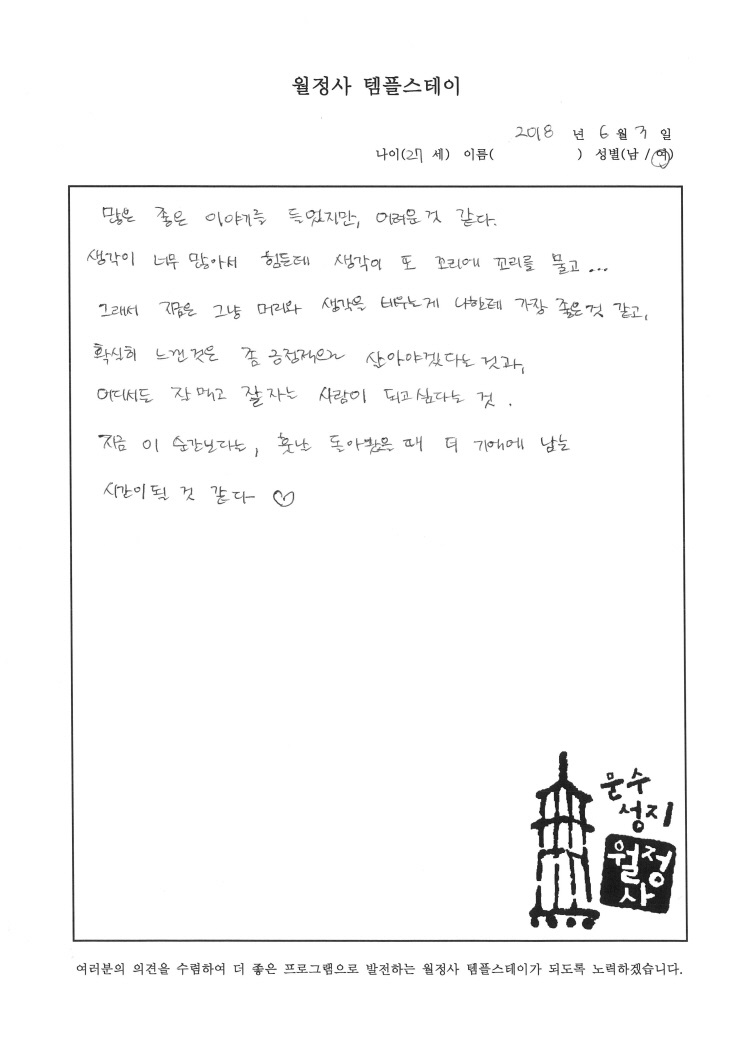 월정사 템플스테이
2018 년 6 월 3 일
나이(27 세) 이름( ) 성별(남 / 여)
많은 좋은 이야기를 들었지만, 어려운것 같다.
생각이 너무 많아서 힘든데 생각이 또 꼬리에 꼬리를 물고...
그래서 지금은 그냥 머리와 생각을 비우는게 나한테 가장 좋은것 같고,
확실히 느낀것은 좀 긍정적으로 살아야겠다는 것과,
어디서든 잘먹고 잘자는 사람이 되고싶다는 것.
지금 이 순간보다는, 훗날 돌아봤을 때 더 기억에 남는
시간이 될 것 같다 ♡
문수
성지
월정
사
여러분의 의견을 수렴하여 더 좋은 프로그램으로 발전하는 월정사 템플스테이가 되도록 노력하겠습니다.